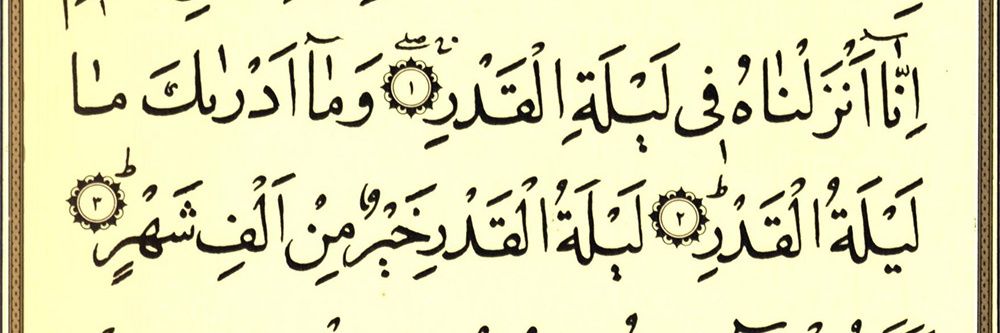 اِنَّٓا اَنْزَلْنَاهُ فٖى لَيْلَةِ الْقَدْرِ ۝١ وَمَٓا اَدْرٰيكَ مَا
لَيْلَةُ الْقَدْرِ ۝٢ لَيْلَةُ الْقَدْرِ خَيْرٌ مِنْ اَلْفِ شَهْرٍ ۝٣